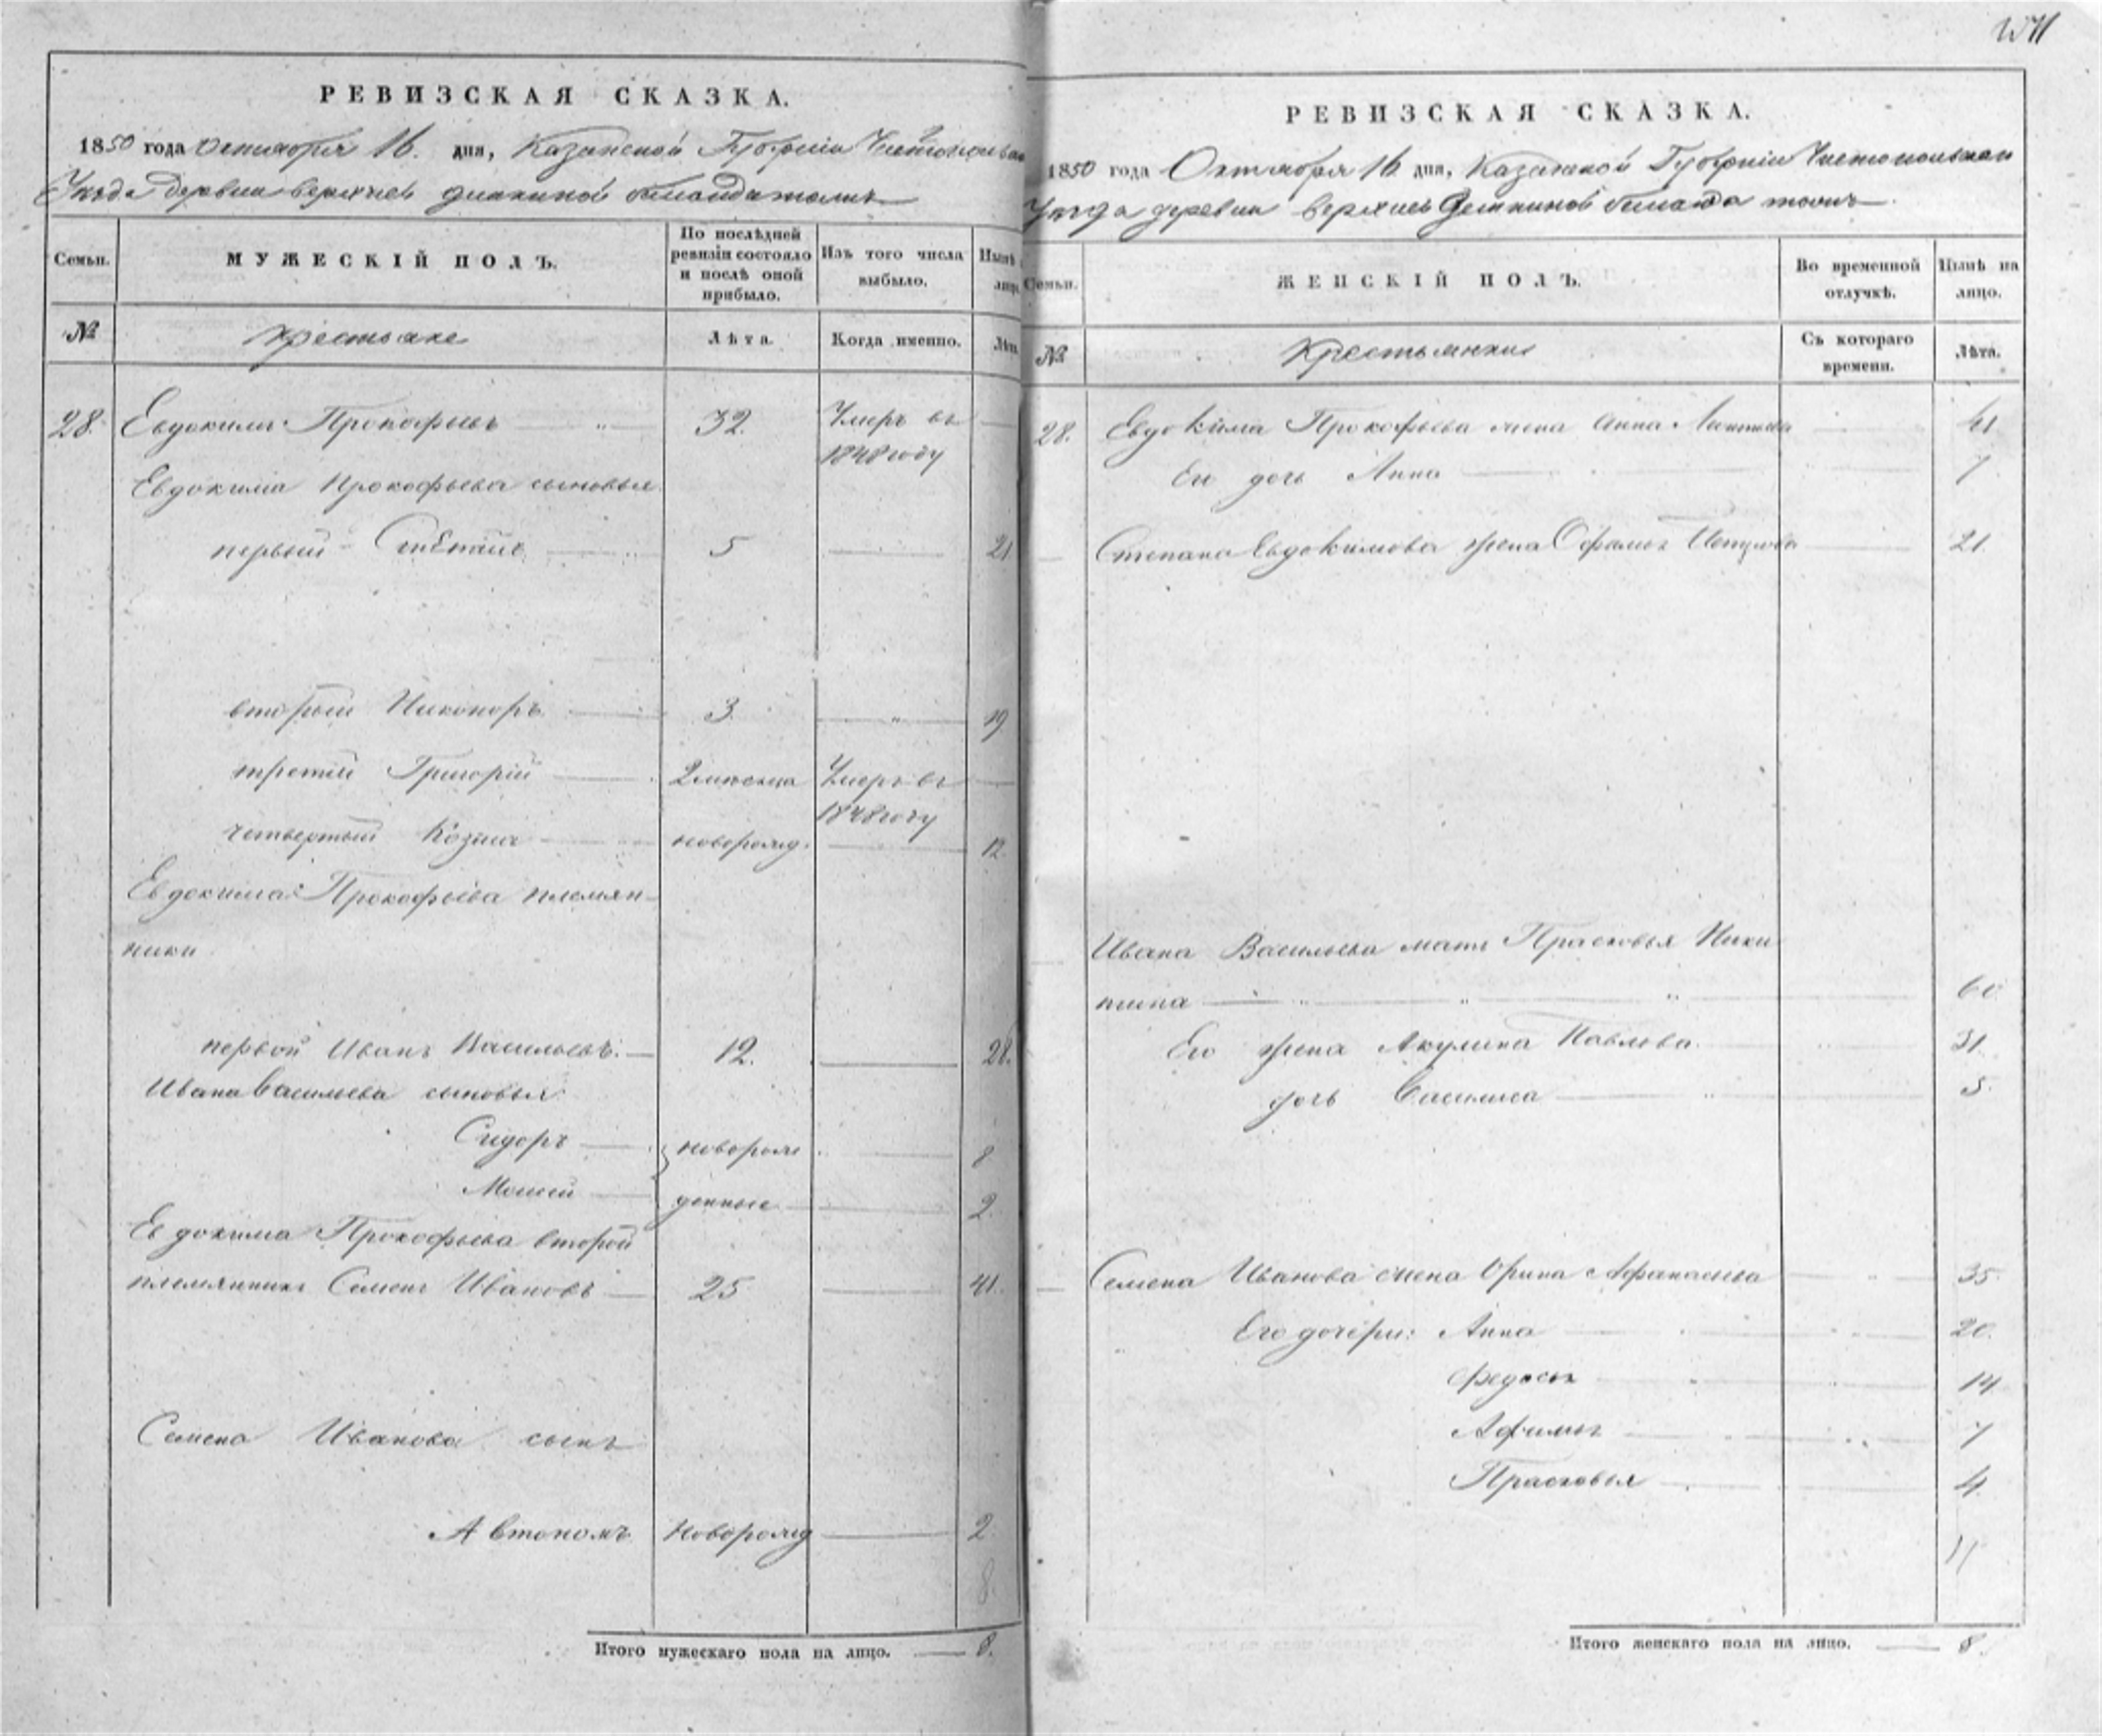 РЕВИЗСКАЯ СКАЗКА.
1850 года Октября 16. дня, Казанской Губерніи
Уѣзда деревни верхней
Семьи.
МУЖЕСКІЙ ПОЛЪ.
По послѣдней ревизіи состояло и послѣ оной прибыло.
Изъ того числа выбыло.
Нынѣ
№
Крестьяне
Лѣта.
Когда именно.
Лѣта
28. Евдокимъ Прокофьевъ 32. Умеръ въ 1848 году
Евдокима Прокофьева сыновья
первый Степанъ 5 21
вторый Никоноръ 3. 19
третій Григорій 2 месяца Умеръ въ 1848 году
четвертый Козма новорожд. 12.
Евдокима Прокофьева племян-
ники
первой Иванъ Васильевъ. 12. 28.
Ивана Васильева сыновья
Сидоръ новорож 8
Моисей денные 2.
Евдокима Прокофьева второй
племянникъ Семенъ Ивановъ 25 41.
Семена Иванова сынъ
Автономъ Новорожд 2.
8.
Итого мужескаго пола на лицо. 8.
РЕВИЗСКАЯ СКАЗКА.
1850 года Октября 16 дня, Казанской Губерніи Чистопольскаго
Уѣзда деревни верхней
Семьи.
ЖЕНСКІЙ ПОЛЪ.
Во временной отлучкѣ.
Нынѣ на лицо.
№
Крестьянки
Съ котораго времени.
Лѣта.
28. Евдокима Прокофьева жена Анна 41
Его дочь Анна 7
Степана Евдокимова жена 21.
Ивана Васильева мать Прасковья Ники
тина 60
Его жена Акулина Павлова. 31.
дочь Василиса 5.
Семена Иванова жена Орина Афанасьева 35
Его дочери: Анна 20.
Федосья 14
Афимья 7
Прасковья 4.
11
Итого женскаго пола на лицо. 8.